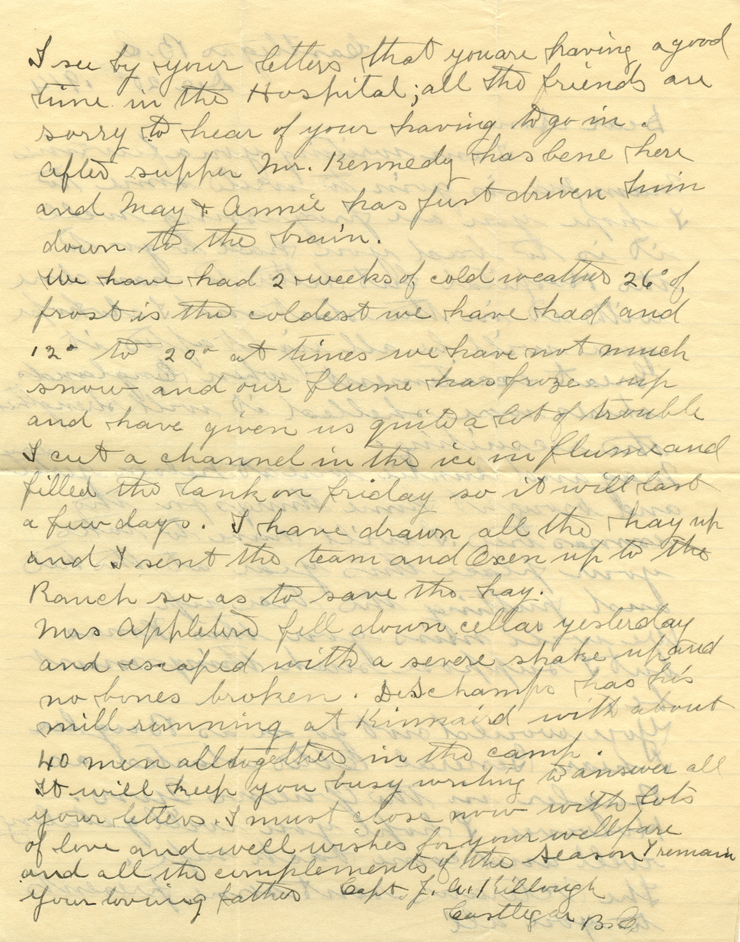 I see by your letters that you are having a good
time in the Hospital; all the friends are
sorry to hear of your having to go in.
After supper Mr. Kennedy has bene here
and May & Annie has just driven him
down to the train.
We have had 2 weeks of cold weather 26° of
frost is the coldest we have had and
12° to 20° at times we have not much
snow and our flume has froze up
and have given us quite a lot of trouble
I cut a channel in the ice in flume and
filled the tank on friday so it will last
a few days. I have drawn all the hay up
and I sent the team and Oxen up to the
Ranch so as to save the hay.
Mrs Appleton fell down cellar yesterday
and escaped with a severe shake up and
no bones broken. DesChamps has his
mill running at Kinnaird with about
40 men alltogether in the camp.
It will keep you busy writing to answer all
your letters. I must close now with lots
of love and well wishes for your wellfare
and all the complements of the season I remain
your loving father Capt. J. A. Killough
Casttegar B.C.